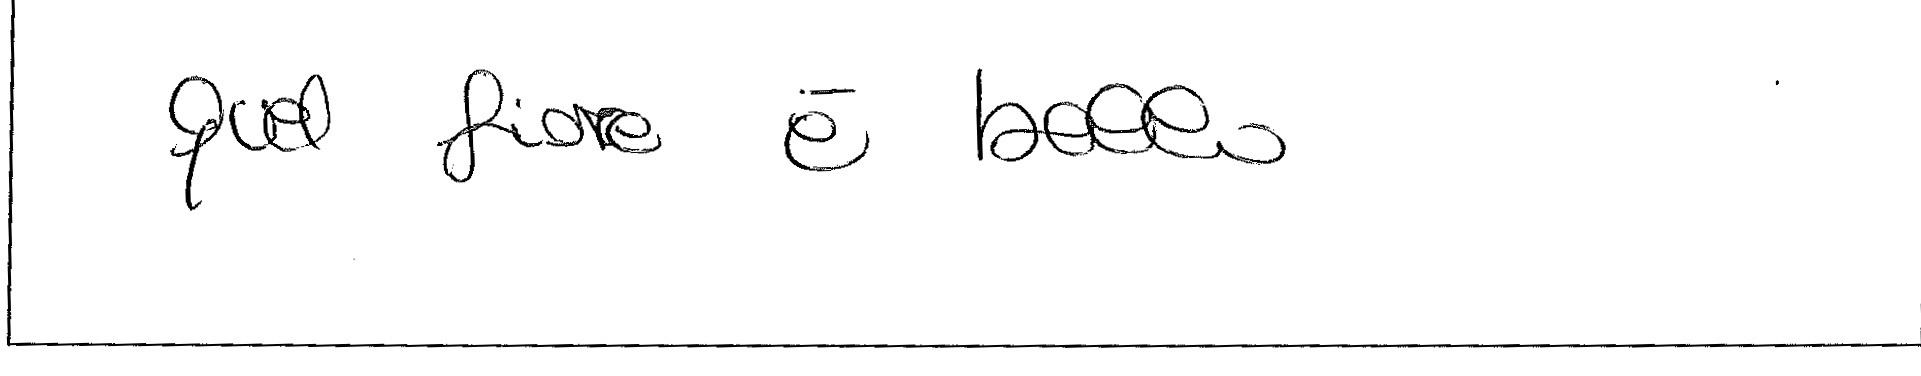 quel fiore è bello